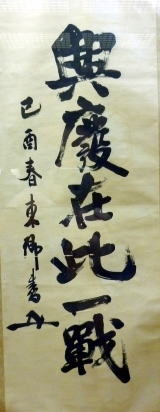 興廢在此一戰
己酉春東郷書